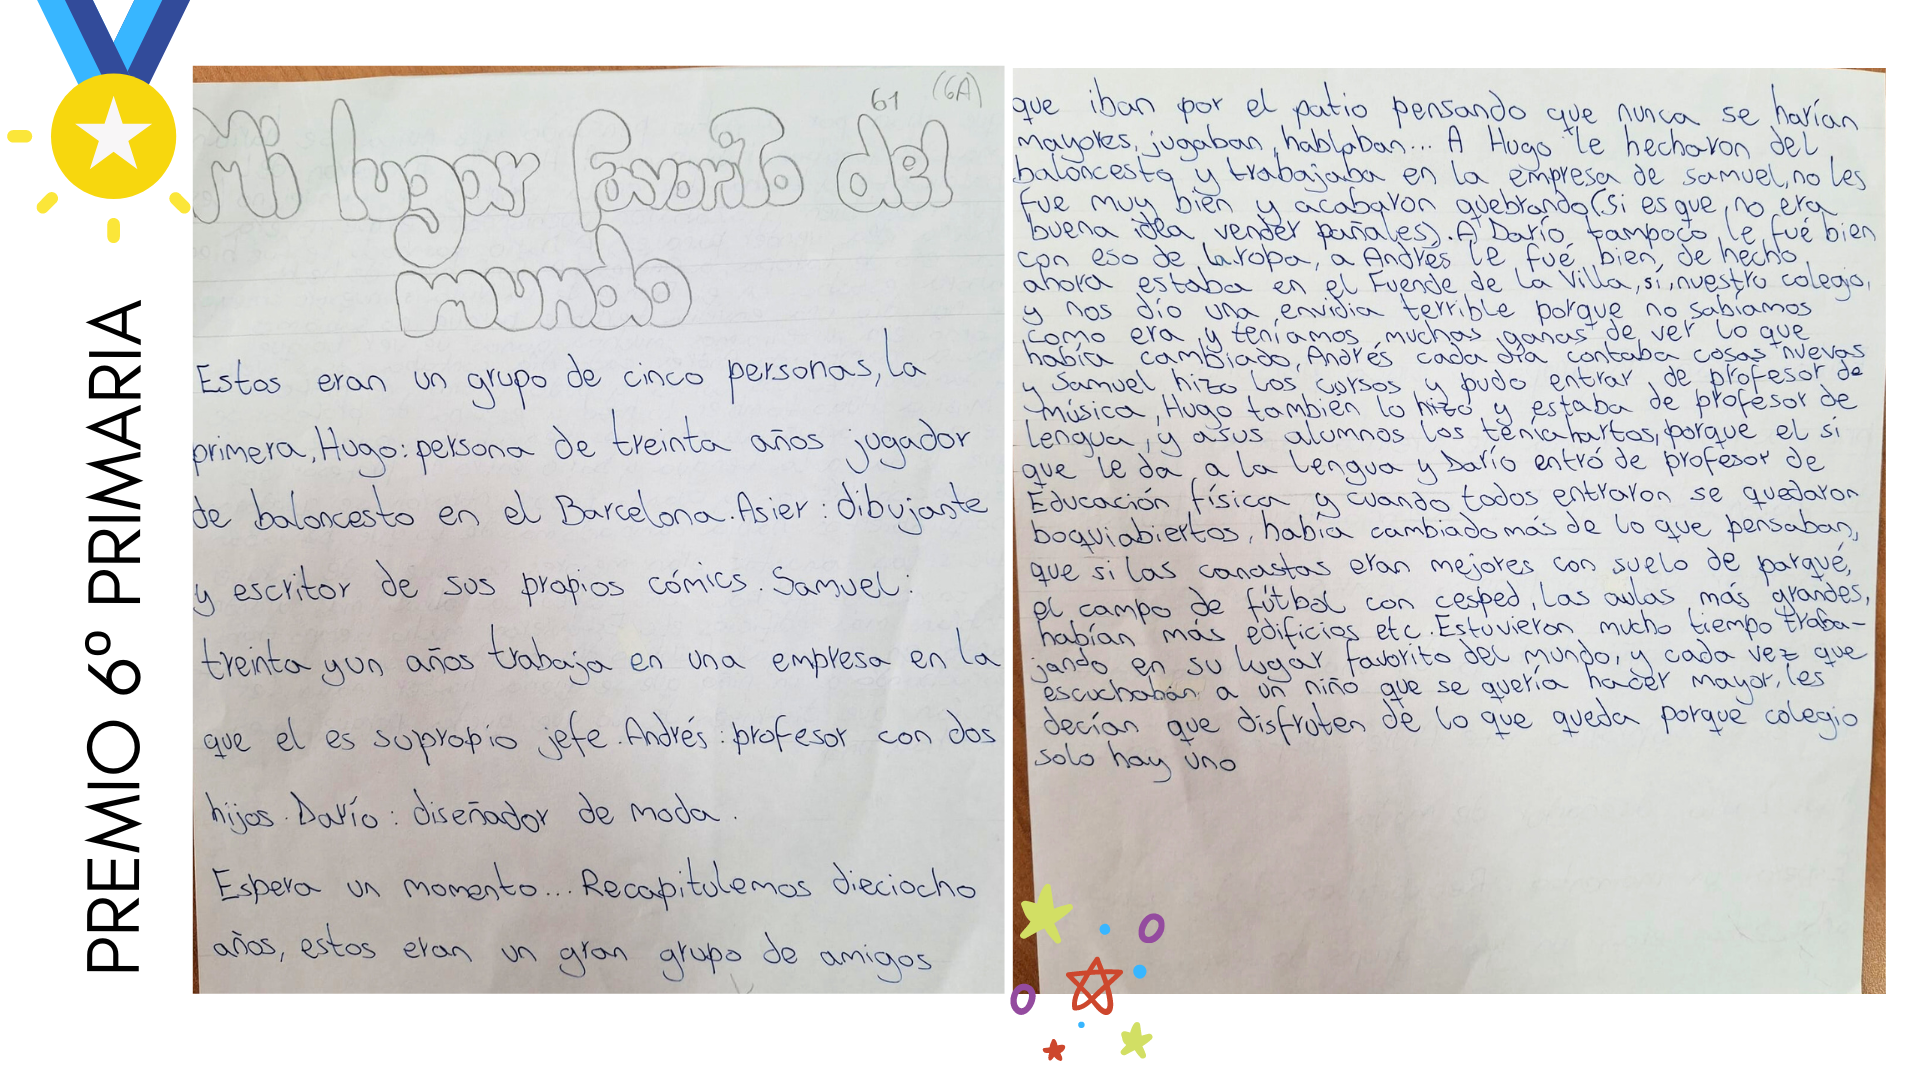 PREMIO 6º PRIMARIA
61 (6A)
Mi lugar favorito del
mundo
Estos eran un grupo de cinco personas, la
primera, Hugo: persona de treinta años jugador
de baloncesto en el Barcelona. Asier: dibujante
y escritor de sus propios cómics. Samuel:
treinta y un años trabaja en una empresa en la
que el es su propio jefe. Andrés: profesor con dos
hijos. Darío: diseñador de moda.
Espera un momento... Recapitulemos dieciocho
años, estos eran un gran grupo de amigos
que iban por el patio pensando que nunca se harían
mayores, jugaban, hablaban... A Hugo le hecharon del
baloncesto y trabajaba en la empresa de samuel, no les
fue muy bien y acabaron quebrando (si es que, no era
buena idea vender pañales). A Darío tampoco le fué bien
con eso de la ropa, a Andrés le fué bien, de hecho
ahora estaba en el Fuende de La Villa, sí, nuestro colegio,
y nos dío una envidia terrible porque no sabíamos
como era y teníamos muchas ganas de ver lo que
había cambiado, Andrés cada día contaba cosas nuevas
y Samuel hizo los cursos y pudo entrar de profesor de
música, Hugo también lo hizo y estaba de profesor de
lengua, y a sus alumnos los tenía hartos, porque el si
que le da a la lengua y Darío entró de profesor de
Educación física y cuando todos entraron se quedaron
boquiabiertos, había cambiado más de lo que pensaban,
que si las canastas eran mejores con suelo de parqué,
el campo de fútbol con cesped, las aulas más grandes,
habían más edificios etc. Estuvieron mucho tiempo traba-
jando en su lugar favorito del mundo, y cada vez que
escuchaban a un niño que se quería hacer mayor, les
decían que disfruten de lo que queda porque colegio
solo hay uno